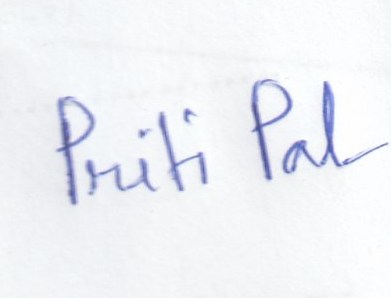 Priti Pal